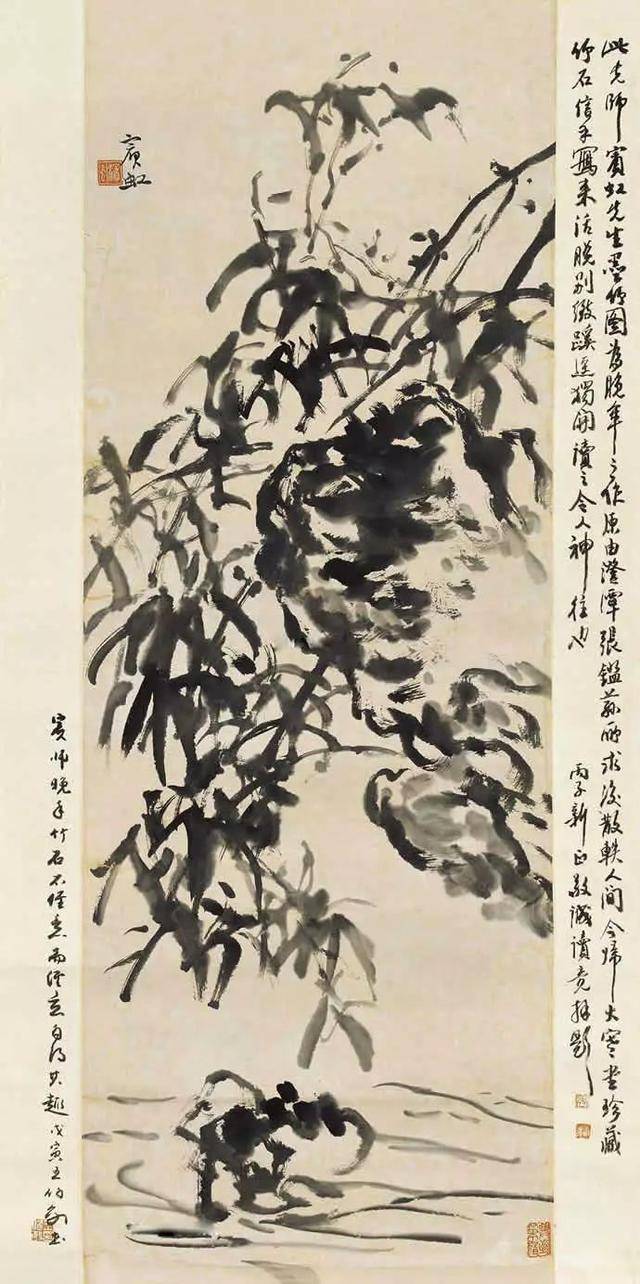 此先師賓虹先生墨竹圖為晚年之作原由澄潭張所求後散軼人間今歸大堂珍藏
竹石信手寫來活脫別致蹊徑獨開讀之令人神往也
丙子新正敬誠讀竟拜題
賓虹
賓師晚年竹石不經意而經意自得其趣戊寅王伯敏書